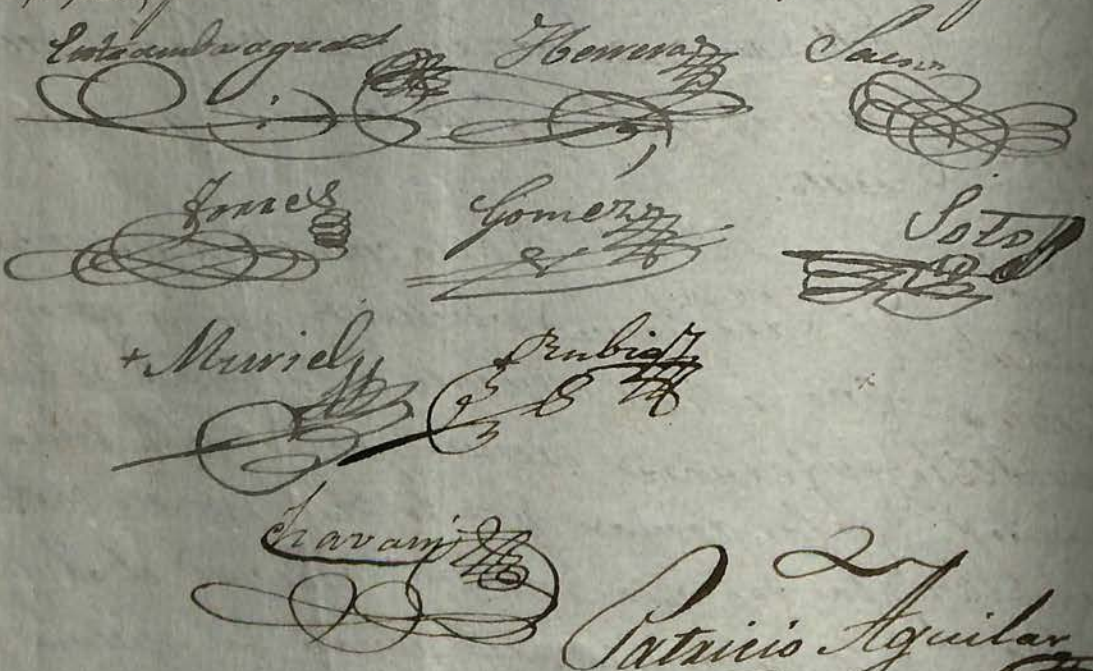 Entrambasaguas Herrera
Torres Gomez Soto
Muriel Rubio
Patricio Aguilar